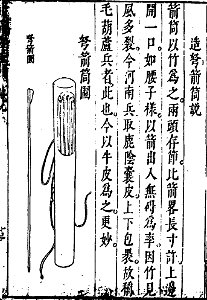 造箭筒説
箭筒以竹為之兩頭存節比箭畧長寸許上邊
開一口如腰子樣以箭出入無碍為率因竹見
風多裂今河南兵取鹿陰囊皮上下包裹故稱
毛葫蘆兵者此也今以牛皮為之更妙
弩箭筒圖
弩箭圖